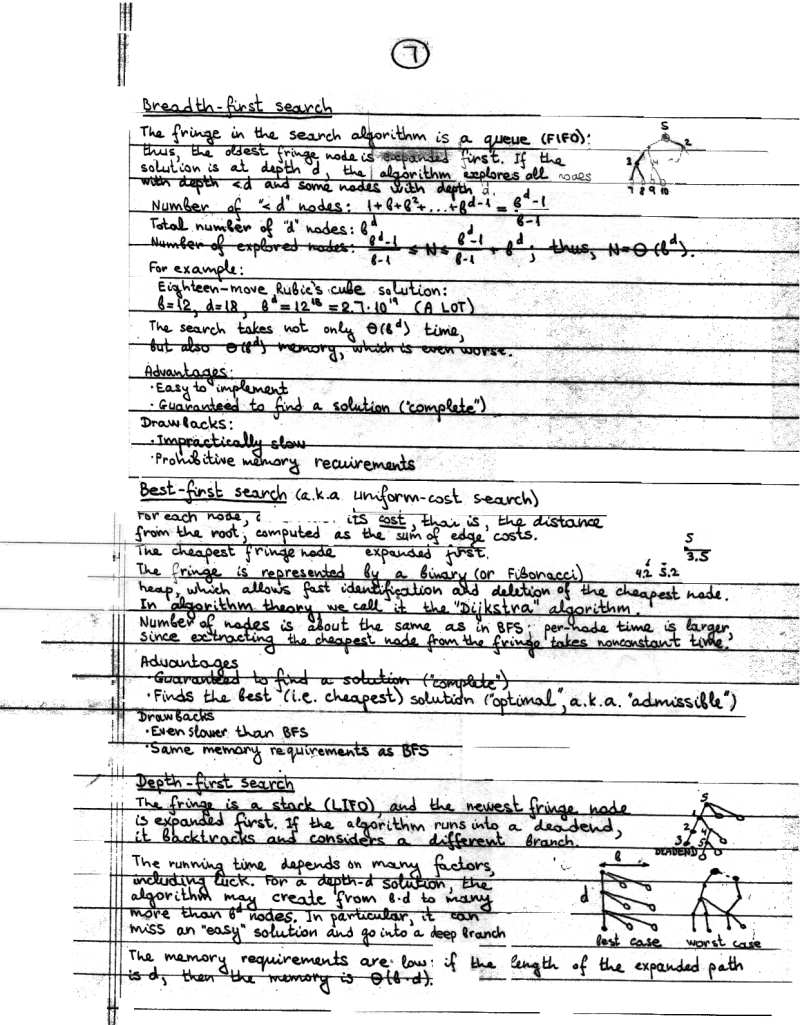 7
Breadth-first search
The fringe in the search algorithm is a queue (FIFO):
thus, the oldest fringe node is expanded first. If the
solution is at depth d, the algorithm explores all nodes
with depth <d and some nodes with depth d.
Number of "<d" nodes: 1+b+b²+...+b^(d-1) = (b^d-1)/(b-1)
Total number of "d" nodes: b^d
Number of explored nodes: (b^d-1)/(b-1) ≤ N ≤ (b^d-1)/(b-1) + b^d; thus, N=Θ(b^d).
For example:
Eighteen-move Rubic's cube solution:
b=12, d=18, b^d = 12^18 = 2.7·10^19 (A LOT)
The search takes not only Θ(b^d) time,
but also Θ(b^d) memory, which is even worse.
Advantages:
·Easy to implement
·Guaranteed to find a solution ("complete")
Drawbacks:
·Impractically slow
·Prohibitive memory requirements
S
2
3
4
7 8 9 10
Best-first search (a.k.a uniform-cost search)
For each node, its cost, that is, the distance
from the root, computed as the sum of edge costs.
The cheapest fringe node expanded first.
The fringe is represented by a binary (or Fibonacci)
heap, which allows fast identification and deletion of the cheapest node.
In algorithm theory we call it the "Dijkstra" algorithm.
Number of nodes is about the same as in BFS; per-node time is larger,
since extracting the cheapest node from the fringe takes nonconstant time.
S
3.5
4.2 5.2
Advantages
·Guaranteed to find a solution ("complete")
·Finds the best (i.e. cheapest) solution ("optimal", a.k.a. "admissible")
Drawbacks
·Even slower than BFS
·Same memory requirements as BFS
Depth-first search
The fringe is a stack (LIFO), and the newest fringe node
is expanded first. If the algorithm runs into a deadend,
it backtracks and considers a different branch.
S
1
2 4
3 5
DEADEND
The running time depends on many factors,
including luck. For a depth-d solution, the
algorithm may create from b·d to many
more than b^d nodes. In particular, it can
miss an "easy" solution and go into a deep branch
b
d
best case worst case
The memory requirements are low: if the length of the expanded path
is d, then the memory is Θ(b·d).